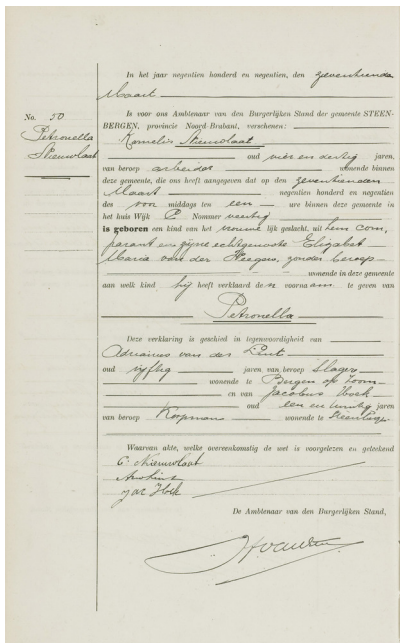 In het jaar negentien honderd en negentien, den zeventienden
Maart
Is voor ons Ambtenaar van den Burgerlijken Stand der gemeente STEEN-
BERGEN, provincie Noord-Brabant, verschenen:
No. 50
Petronella
Nieuwlaat
Kornelis Nieuwlaat
oud vier en dertig jaren,
van beroep arbeider wonende binnen
deze gemeente, die ons heeft aangegeven dat op den zeventienden
Maart negentien honderd en negentien
des voor middags ten een ure binnen deze gemeente in
het huis Wijk P. Nommer veertig
is geboren een kind van het vrouwelijk geslacht, uit hem com,
parant en zijne echtgenoote Elizabet
Maria van der Steegen, zonder beroep
wonende in deze gemeente
aan welk kind hij heeft verklaard de voornaam te geven van
Petronella
Deze verklaring is geschied in tegenwoordigheid van
Adrianus van der Lint
oud vijftig jaren, van beroep Slager
wonende te Bergen op Zoom
en van Jacobus Hoek
oud een en twintig jaren
van beroep Koopman wonende te Steenbergen
Waarvan akte, welke overeenkomstig de wet is voorgelezen en geteekend
C. Nieuwlaat
Jac Hoek
De Ambtenaar van den Burgerlijken Stand,